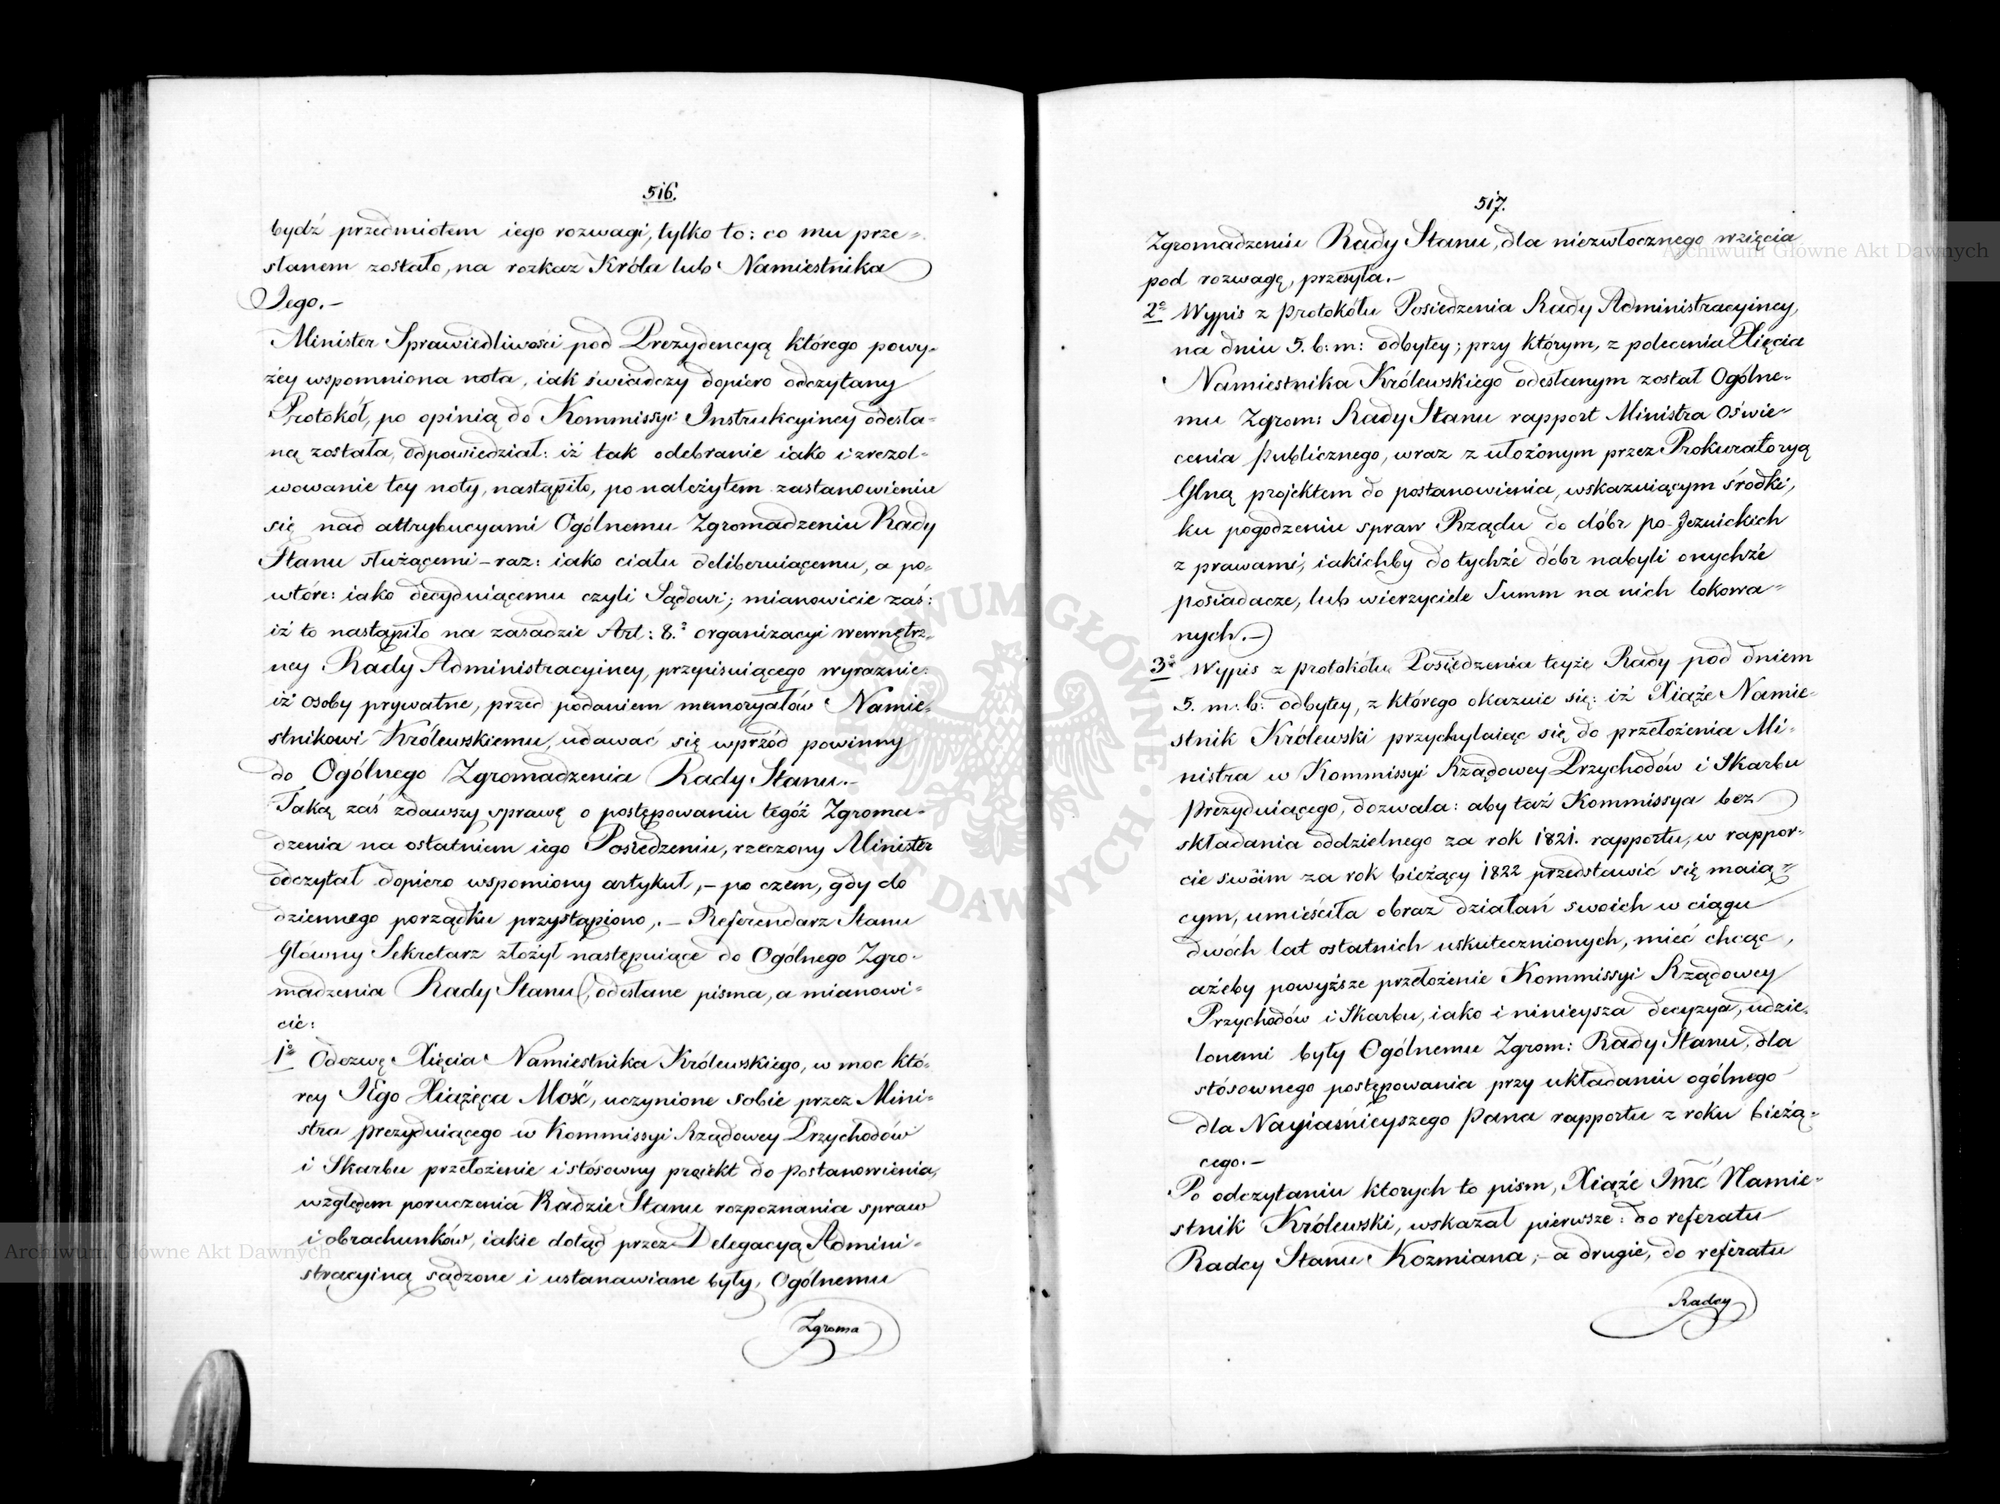 516.
bydź przedmiotem iego rozwagi, tylko to: co mu prze=
słanem zostało, na rozkaz Króla lub Namiestnika
Jego.—
Minister Sprawiedliwości pod Prezydencyą którego powy-
żey wspomniona nota, iak świadczy dopiero odczytany
Protokół, po opinią do Kommissyi Instrukcyiney odesła-
ną została, odpowiedział: iż tak odebranie iako i zrezol-
wowanie tey noty, nastąpiło, po należytem zastanowieniu
się nad attrybucyami Ogólnemu Zgromadzeniu Rady
Stanu służącemi – raz: iako ciału deliberuiącemu, a po-
wtóre: iako decyduiącemu czyli Sądowi; mianowicie zaś:
iż to nastąpiło na zasadzie Art: 8.º organizacyi wewnętrz-
ney Rady Administracyiney, przepisuiącego wyraznie:
iż osoby prywatne, przed podaniem memoryałów Namie-
stnikowi Królewskiemu, udawać się wprzód powinny
do Ogólnego Zgromadzenia Rady Stanu.—
Taką zaś zdawszy sprawę o postępowaniu tegóż Zgroma-
dzenia na ostatniem iego Posiedzeniu, rzeczony Minister
odczytał dopiero wspomiony artykuł, – po czem, gdy do
dziennego porządku przystąpiono, – Referendarz Stanu
Główny Sekretarz złożył następuiące do Ogólnego Zgro-
madzenia Rady Stanu, odesłane pisma, a mianowi-
cie:
1º Odezwę Xięcia Namiestnika Królewskiego, w moc któ-
rey JEgo Xiążęca Mość, uczynione sobie przez Mini-
stra prezyduiącego w Kommissyi Rządowey Przychodów
i Skarbu przełożenie i stósowny proiekt do postanowienia,
względem poruczenia Radzie Stanu rozpoznania spraw
i obrachunków, iakie dotąd przez Delegacyą Admini-
stracyiną sądzone i ustanawiane były, Ogólnemu
Zgroma
517.
Zgromadzeniu Rady Stanu, dla niezwłocznego wzięcia
pod rozwagę, przesyła.—
2º Wypis z protokółu Posiedzenia Rady Administracyiney,
na dniu 5. b: m: odbytey; przy którym, z polecenia Xięcia
Namiestnika Królewskiego odesłanym został Ogólne-
mu Zgrom: Rady Stanu rapport Ministra Oświe-
cenia publicznego, wraz z ułożonym przez Prokuratoryą
Glną projektem do postanowienia, wskazuiącym środki,
ku pogodzeniu spraw Rządu do dóbr po-Jezuickich
z prawami, iakichby do tychże dóbr nabyli onychże
posiadacze, lub wierzyciele Summ na nich lokowa-
nych.—
3º Wypis z protokółu Posiedzenia teyże Rady pod dniem
5. m: b: odbytey, z którego okazuie się: iż Xiąże Namie-
stnik Królewski przychylaiąc się do przełożenia Mi-
nistra w Kommissyi Rządowey Przychodów i Skarbu
prezyduiącego, dozwala: aby taż Kommissya bez
składania oddzielnego za rok 1821. rapportu, w rappor-
cie swóim za rok bieżący 1822 przedstawić się maią=
cym, umieściła obraz działań swoich w ciągu
dwóch lat ostatnich uskutecznionych, mieć chcąc,
ażeby powyższe przełożenie Kommissyi Rządowey
Przychodów i Skarbu, iako i ninieysza decyzya, udzie-
lonemi były Ogólnemu Zgrom: Rady Stanu, dla
stósownego postępowania przy układaniu ogólnego
dla Nayiaśnieyszego Pana rapportu z roku bieżą-
cego.—
Po odczytaniu ktorych to pism, Xiąże Jmć Namie-
stnik Królewski, wskazał pierwsze: do referatu
Radcy Stanu Kozmiana, – a drugie, do referatu
Radcy
Archiwum Główne Akt Dawnych
Archiwum Główne Akt Dawnych
ARCHIWUM GŁÓWNE AKT DAWNYCH